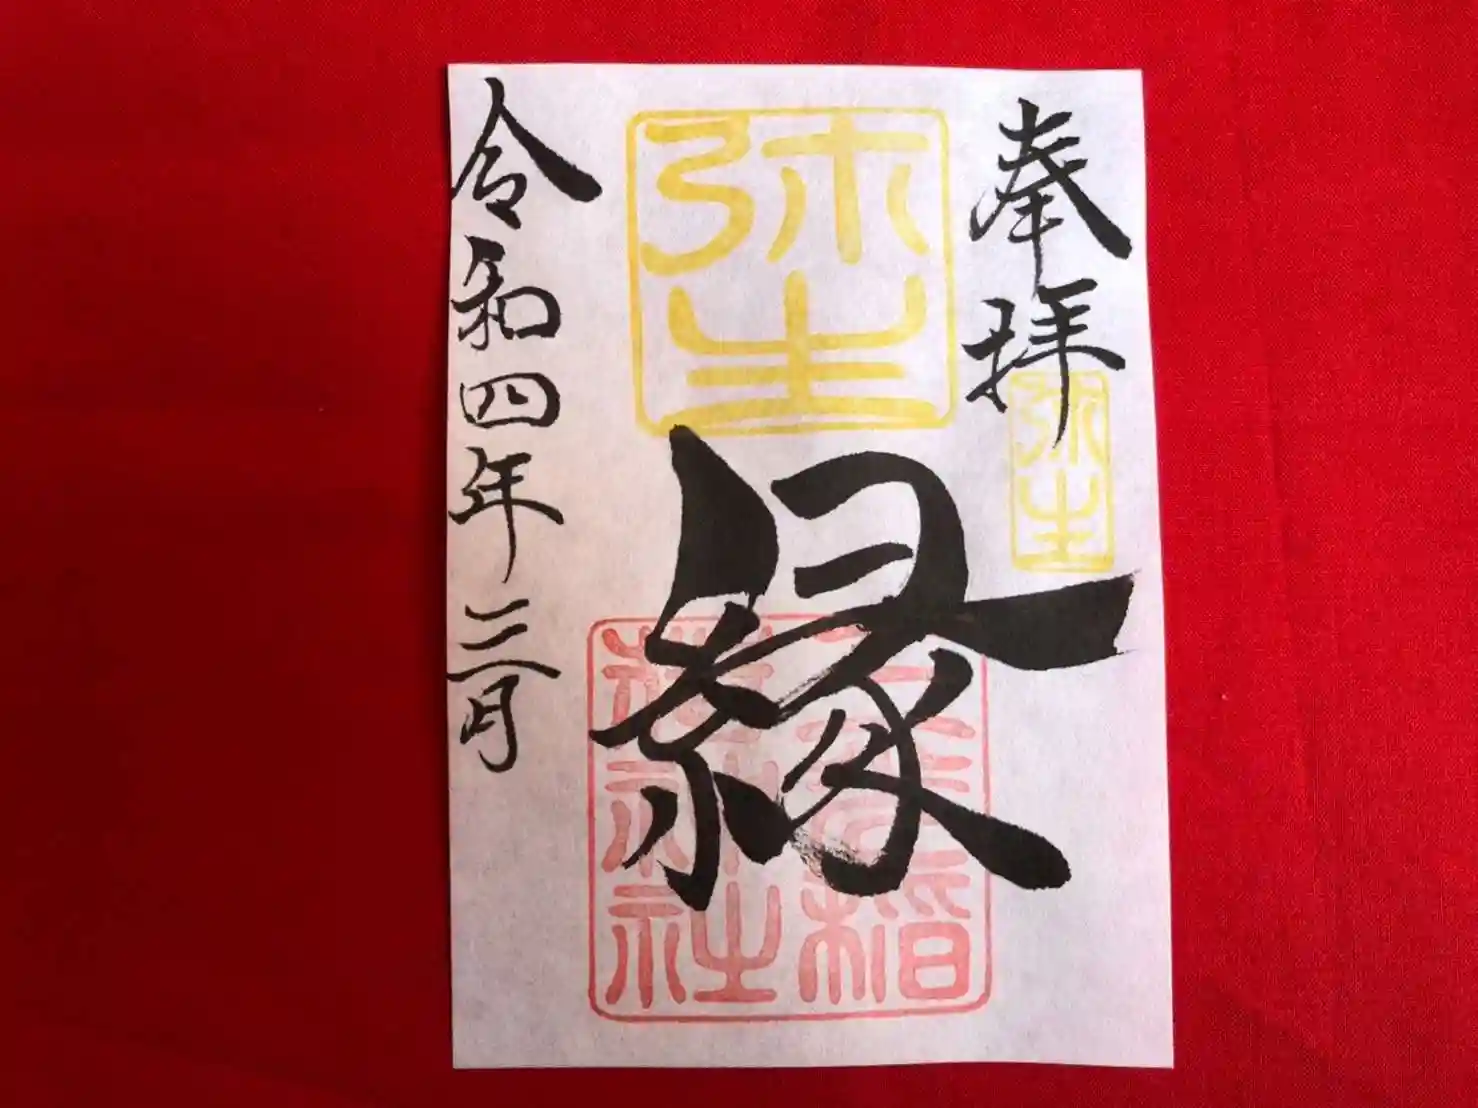 奉拝
弥生
弥生
縁
稲
神社
令和四年三月